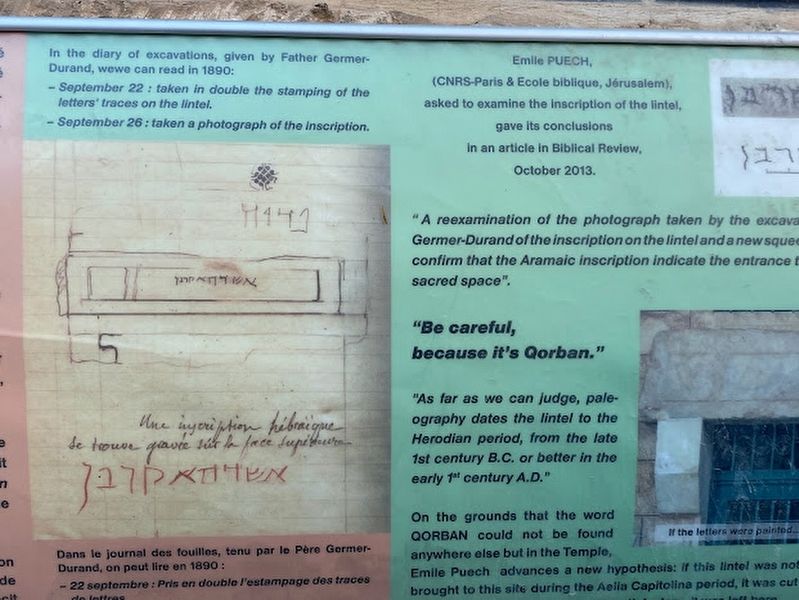 In the diary of excavations, given by Father Germer-
Durand, wewe can read in 1890:
– September 22 : taken in double the stamping of the
letters' traces on the lintel.
– September 26 : taken a photograph of the inscription.
Une inscription hébraïque
se trouve gravée sur la face supérieure
Dans le journal des fouilles, tenu par le Père Germer-
Durand, on peut lire en 1890 :
– 22 septembre : Pris en double l'estampage des traces
de lettres
Emile PUECH,
(CNRS-Paris & Ecole biblique, Jérusalem),
asked to examine the inscription of the lintel,
gave its conclusions
in an article in Biblical Review,
October 2013.
"A reexamination of the photograph taken by the
Germer-Durand of the inscription on the lintel and a new
confirm that the Aramaic inscription indicate the entrance
sacred space".
"Be careful,
because it's Qorban."
"As far as we can judge, pale-
ography dates the lintel to the
Herodian period, from the late
1st century B.C. or better in the
early 1st century A.D."
On the grounds that the word
QORBAN could not be found
anywhere else but in the Temple,
Emile Puech advances a new hypothesis: if this lintel was not
brought to this site during the Aelia Capitolina period, it was cut
If the letters were painted...